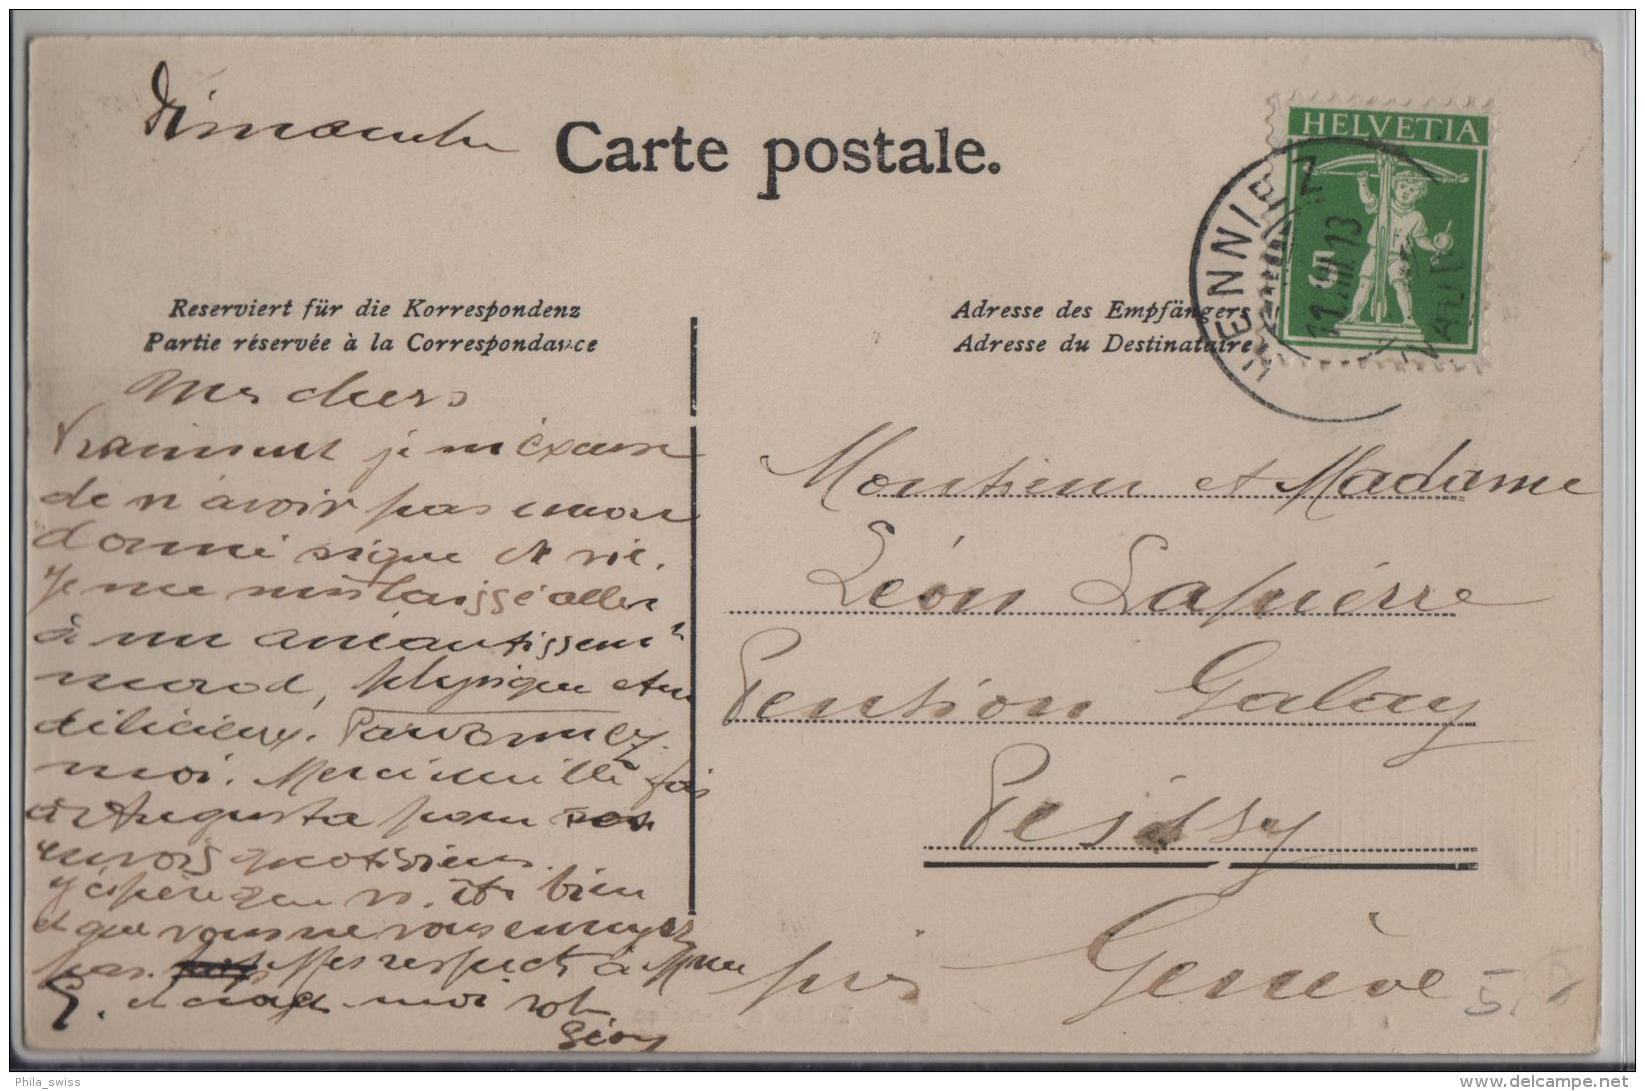 Dimanche
Carte postale.
HELVETIA
5
HENNIEZ
VAUD
Reserviert für die Korrespondenz
Partie réservée à la Correspondance
Adresse des Empfängers
Adresse du Destinataire
Mes chers
Vraiment je m'excuse
de n'avoir pas encore
donné signe de vie.
Je me suis laissé aller
à un anéantissement
moral, physique
délicieux. Pardonnez
moi. Merci mille fois
à Augusta pour ses
envois quotidiens.
J'espère que v. êtes bien
et que vous ne vous ennuyez
pas. Mes respects à Mme
G. moi
Monsieur et Madame
Léon Lapierre
Pension Galay
Peissy
près Genève
5
Phila_swiss
delcampe.net